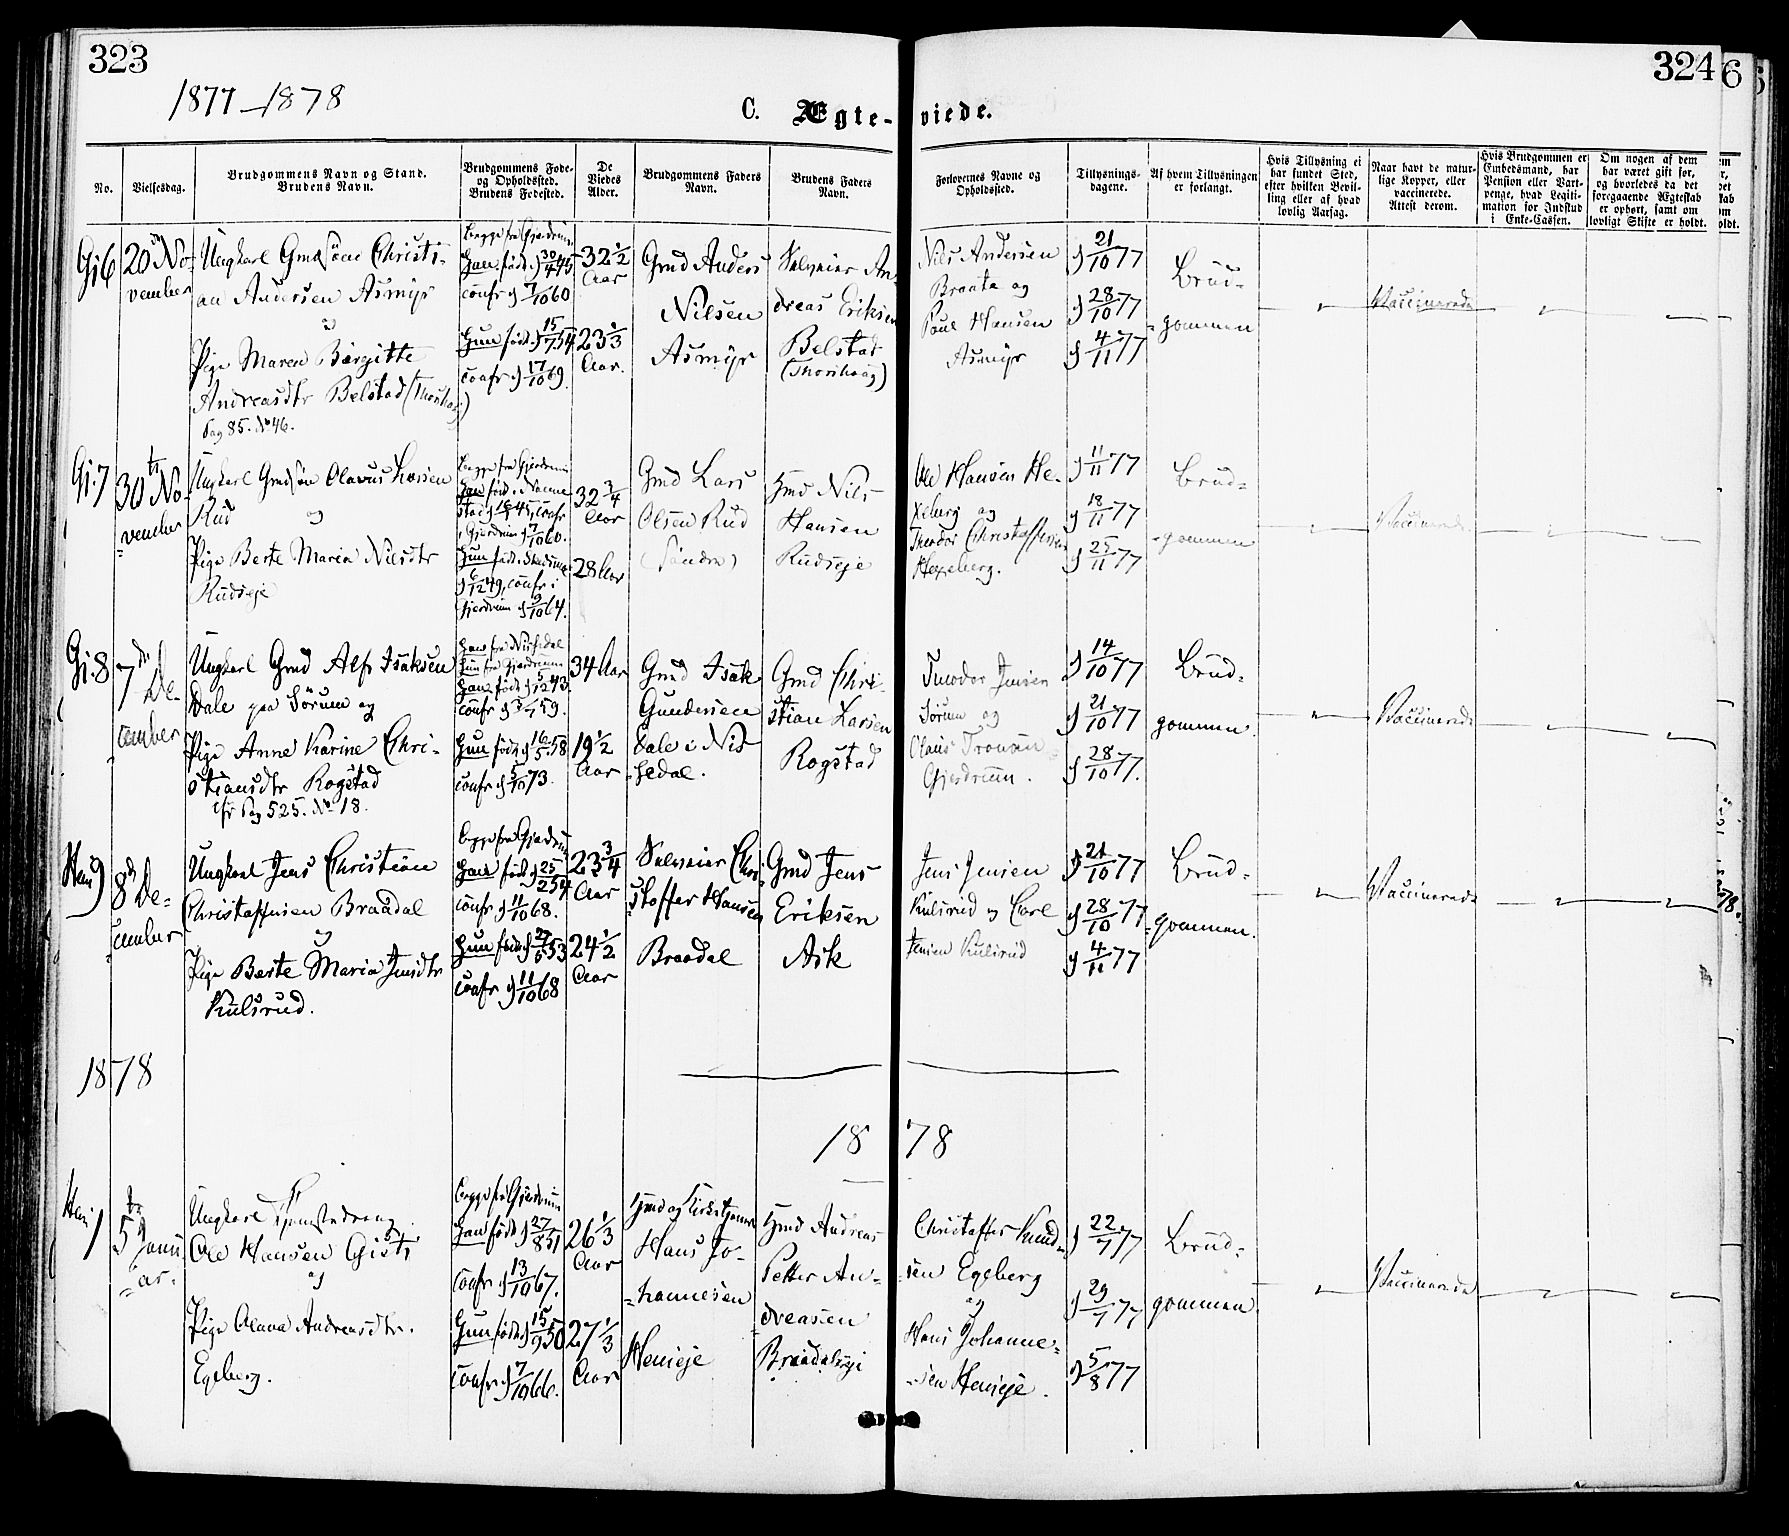 323
324
6
1877-1878
C. Ægte-viede.
No.
Vielsesdag.
Brudgommens Navn og Stand.
Brudens Navn.
Brudgommens Føde-
og Opholdssted.
Brudens Fødested.
De
Viedes
Alder.
Brudgommens Faders
Navn.
Brudens Faders
Navn.
Forlovernes Navne og
Opholdssted.
Tillysnings-
dagene.
Af hvem Tillysningen
er forlangt.
Hvis Tillysning ei
har fundet Sted,
efter hvilken Bevil-
ling eller af hvad
lovlig Aarsag.
Naar havt de natur-
lige Kopper, eller
vaccinerede.
Attest derom.
Hvis Brudgommen er
Embedsmand, har
Pension eller Vart-
penge, hvad Legiti-
mation for Indskud
i Enke-Cassen.
Om nogen af dem
har været gift før,
og hvorledes da det
foregaaende Ægteskab
er ophørt, samt om
lovligt Skifte er holdt.
Gj 6
20 No-
vember
Ungkarl Gmdsøn Christi-
an Andersen Asmyr
og
Pige Maren Birgitte
Andreasdtr Belstad (Thorshaug)
Pag 85. No 46.
begge fra Gjerdrum
Han født d 30/4 45
confr d 7/10 60
Hun født d 15/7 54
confr d 17/10 69.
32 1/2
Aar
23 1/3
Aar.
Gmd Anders
Nilsen
Asmyr
Selveier An-
dreas Eriksen
Belstad
(Thorshaug)
Nils Andersen
Braata og
Poul Hansen
Asmyr
d 21/10 77
d 28/10 77
d 4/11 77
Brud-
gommen
Vaccinerede
Gj. 7
30 No-
vember
Ungkarl Gmdsøn Olavus Larsen
Rud og
Pige Berte Maria Nilsdtr
Rudseje
begge fra Gjerdrum
Han født i Nanne-
confr
i Gjerdrum d 7/10 60.
Hun født i
d 6/12 49, confr i
Gjerdrum d 9/10 64.
32 3/4
Aar
28 Aar
Gmd Lars
Olsen Rud
(Søndre)
Hmd Nils
Hansen
Rudseje
Ole Hansen He-
xeberg og
Theodor Christoffersen
Hexeberg.
d 11/11 77
d 18/11 77
d 25/11 77
Brud-
gommen
Vaccinerede
Gj. 8
7 De-
cember
Ungkarl Gmd Alf Isaksen
Dale paa Sørum og
Pige Anne Karine Chri-
stiansdtr Rogstad
cfr Pag 525. No 18.
Han fra Nissedal
Hun fra Gjerdrum
Han født d 5/12 43.
confr d 3/7 59.
Hun født d 16/5 58
confr d 5/10 73.
34 Aar
19 1/2
Aar
Gmd Isak
Gundersen
Dale i Nis-
sedal.
Gmd Chri-
stian Larsen
Rogstad
Theodor Jensen
Sørum og
Claus Tronsen
Gjerdrum.
d 14/10 77
d 21/10 77
d 28/10 77.
Brud-
gommen
Vaccinerede
Hem 9
8 De-
cember
Ungkarl Jens Christian
Christoffersen Braadal
og
Pige Berte Maria Jensdtr
Kulsrud.
begge fra Gjerdrum
Han født d 25/2 54
confr d 11/10 68.
Hun født d 27/5 53
confr d 11/10 68
23 3/4
Aar
24 1/2
Aar
Selveier Chri-
stoffer Hansen
Braadal
Gmd Jens
Eriksen
Ask
Jens Jensen
Kulsrud og Carl
Jensen Kulsrud
d 21/10 77
d 28/10 77
d 4/11 77
Brud-
gommen.
Vaccinerede
78.
1878
1878
Hem 1
5 Janu-
ar.
Ungkarl Tjenestedreng
Ole Hansen
og
Pige Anna Andreasdtr.
Egeberg.
begge fra Gjerdrum
Han født d 27/8 51
confr d 13/10 67.
Hun født d 15/9 50
confr d 7/10 66.
26 1/3
Aar
27 1/3
Aar
Hmd og Kirketjener
Hans Jo-
hannesen
Hemeje
Hmd Andreas
Petter An-
dreasen
Braadalseje
Christoffer Knud-
sen Egeberg
og
Hans Johanne-
sen Hemeje.
d 22/7 77
d 29/7 77
d 5/8 77
Brud-
gommen
Vaccinerede